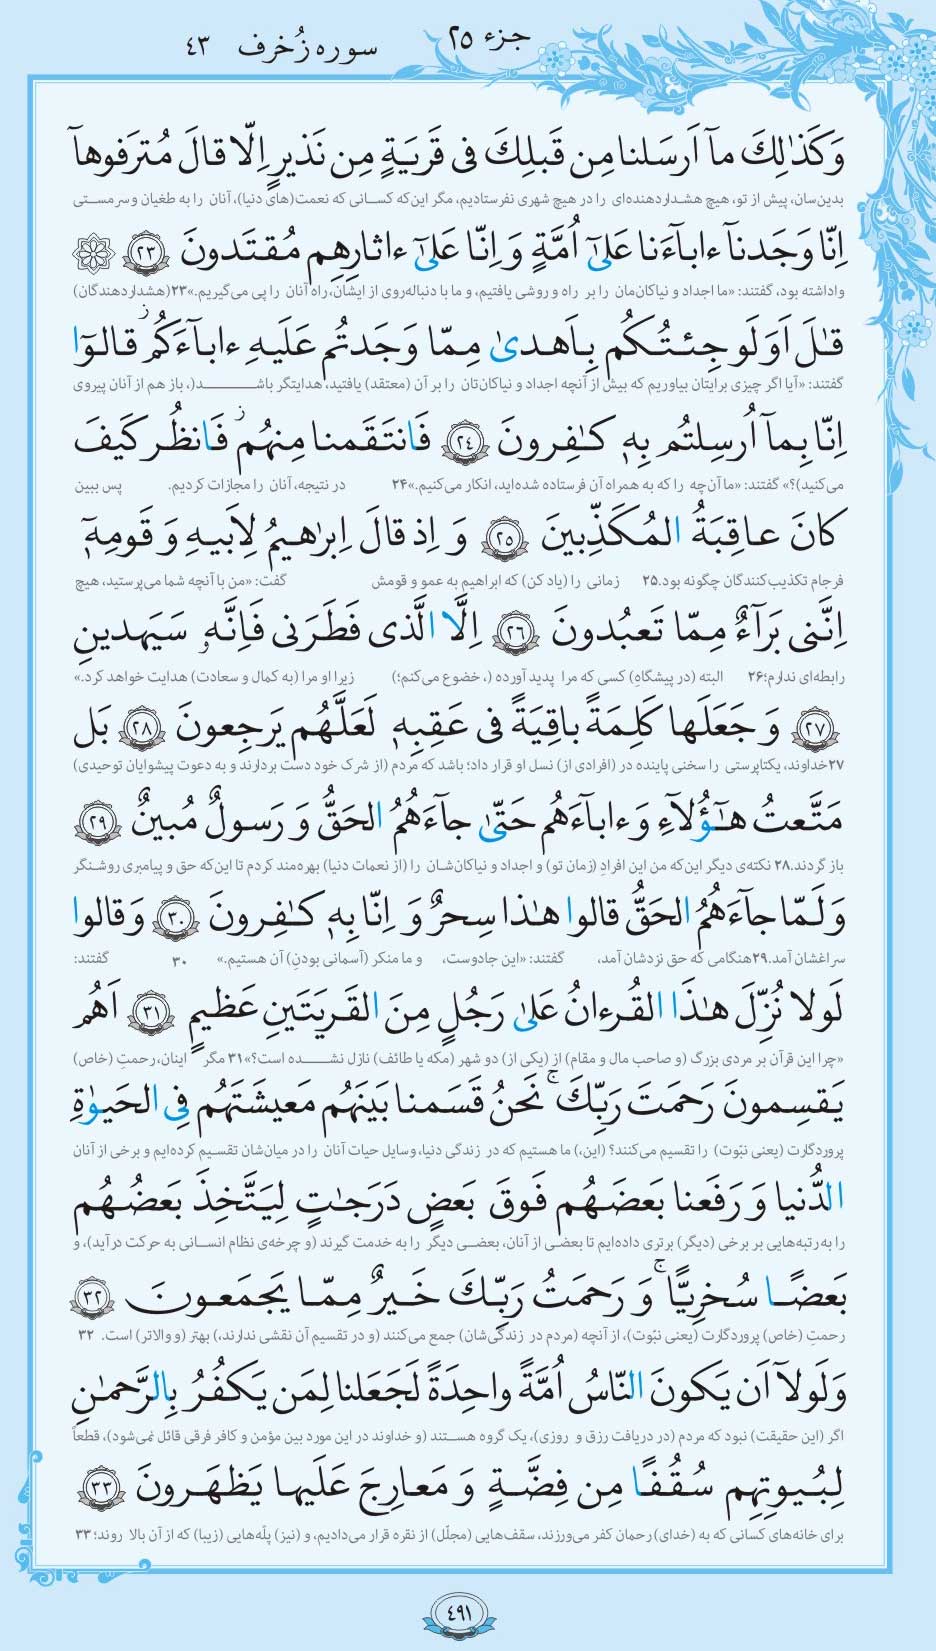 جزء ٢٥
سوره زُخرف ٤٣
وَكَذٰلِكَ مآ اَرسَلنا مِن قَبلِكَ فى قَريَةٍ مِن نَذيرٍ اِلّا قالَ مُترَفوهآ
بدین‌سان، پیش از تو، هیچ هشداردهنده‌ای را در هیچ شهری نفرستادیم، مگر این‌که کسـانی که نعمت(های دنیا)، آنان را به طغیان و سرمستی
اِنّا وَجَدنآ ءابآءَنا عَلىٰٓ اُمَّةٍ وَ اِنّا عَلىٰٓ ءاثارِهِم مُقتَدونَ ٢٣
واداشته بود، گفتند: «ما اجداد و نیاکان‌مان را بر راه و روشی یافتیم، و ما با دنباله‌روی از ایشان، راه آنان را پی می‌گیریم.»۲۳(هشداردهندگان)
قـٰلَ اَوَلَو جِئتُـكُم بِاَهدىٰ مِمّا وَجَدتُم عَلَيهِ ءابآءَكُم ز قالوٓا
گفتند: «آیا اگر چیزی برایتان بیاوریم که بیش از آنچه اجداد و نیاکان‌تان را بر آن (معتقد) یافتید، هدایتگر باشـــد(، باز هم از آنان پیروی
اِنّا بِمآ اُرسِلتُم بِهٖ كـٰفِرونَ ٢٤ فَانتَقَمنا مِنهُم ز فَانظُر كَيفَ
می‌کنید)؟» گفتند: «ما آن‌چه را که به همراه آن فرستاده شده‌اید، انکار می‌کنیم.»۲۴ در نتیجه، آنان را مجازات کردیم. پس ببین
كانَ عاقِبَةُ المُكَذِّبينَ ٢٥ وَ اِذ قالَ اِبرٰهيمُ لِاَبيهِ وَ قَومِهٖٓ
فرجام تکذیب‌کنندگان چگونه بود.۲۵ زمانی را (یاد کن) که ابراهیم به عمو و قومش گفت: «من با آنچه شما می‌پرستید، هیچ
اِنَّنى بَرآءٌ مِمّا تَعبُدونَ ٢٦ اِلَّا الَّذى فَطَرَنى فَاِنَّهٗ سَيَهدينِ
رابطه‌ای ندارم؛۲۶ البته (در پیشگاهِ) کسی که مرا پدید آورده (، خضوع می‌کنم؛) زیرا او مرا (به کمال و سعادت) هدایت خواهد کرد.»
٢٧ وَ جَعَلَها كَلِمَةً باقِيَةً فى عَقِبِهٖ لَعَلَّهُم يَرجِعونَ ٢٨ بَل
۲۷خداوند، یکتاپرستی را سخنی پاینده در (افرادی از) نسل او قرار داد؛ باشد که مردم (از شرک خود دست بردارند و به دعوت پیشوایان توحیدی)
مَتَّعتُ هـٰٓؤُلآءِ وَ ءابآءَهُم حَتّىٰ جآءَهُمُ الحَقُّ وَ رَسولٌ مُبينٌ ٢٩
باز گردند.۲۸ نکته‌ی دیگر این‌که من این افرادِ (زمان تو) و اجداد و نیاکان‌شان را (از نعمات دنیا) بهره‌مند کردم تا این‌که حق و پیامبری روشنگر
وَ لَمّا جآءَهُمُ الحَقُّ قالوا هـٰذا سِحرٌ وَ اِنّا بِهٖ كـٰفِرونَ ٣٠ وَ قالوا
سراغشان آمد.۲۹هنگامی که حق نزدشان آمد، گفتند: «این جادوست، و ما منکر (آسمانی بودنِ) آن هستیم.» ۳۰ گفتند:
لَولا نُزِّلَ هـٰذَا القُرءانُ عَلىٰ رَجُلٍ مِنَ القَريَتَينِ عَظيمٍ ٣١ اَهُم
«چرا این قرآن بر مردی بزرگ (و صاحب مال و مقام) از (یکی از) دو شهر (مکه یا طائف) نازل نشــده است؟»۳۱ مگر اینان، رحمتِ (خاصِ)
يَقسِمونَ رَحمَتَ رَبِّكَ ۚ نَحنُ قَسَمنا بَينَهُم مَعيشَتَهُم فِى الحَيوٰةِ
پروردگارت (یعنی نبّوت) را تقسیم می‌کنند؟ (این،) ما هستیم که در زندگی دنیا، وسایل حیات آنان را در میان‌شان تقسـیم کرده‌ایم و برخی از آنان
الدُّنيا وَ رَفَعنا بَعضَهُم فَوقَ بَعضٍ دَرَجـٰتٍ لِيَتَّخِذَ بَعضُهُم
را به رتبه‌هایی بر برخی (دیگر) برتری داده‌ایم تا بعضـی از آنان، بعضـی دیگر را به خدمت گیرند (و چرخه‌ی نظام انسـانی به حرکت درآید)، و
بَعضًا سُخرِيًّا ۚ وَ رَحمَتُ رَبِّكَ خَيرٌ مِمّا يَجمَعونَ ٣٢
رحمتِ (خاص) پروردگارت (یعنی نبّوت)، از آنچه (مردم در زندگی‌شان) جمع می‌کنند (و در تقسیم آن نقشی ندارند،) بهتر (و والاتر) است. ۳۲
وَ لَولآ اَن يَكونَ النّاسُ اُمَّةً واحِدَةً لَجَعَلنا لِمَن يَكفُرُ بِالرَّحمـٰنِ
اگر (این حقیقت) نبود که مردم (در دریافت رزق و روزی)، یک گروه هسـتند (و خداوند در این مورد بین مؤمن و کافر فرقی قائل نمی‌شود)، قطعاً
لِبُيوتِهِم سُقُفًا مِن فِضَّةٍ وَ مَعارِجَ عَلَيها يَظهَرونَ ٣٣
برای خانه‌های کسانی که به (خدای) رحمان کفر می‌ورزند، سقف‌هایی (مجلّل) از نقره قرار می‌دادیم، و (نیز) پلّه‌هایی (زیبا) که از آن بالا روند؛ ۳۳
٤٩١